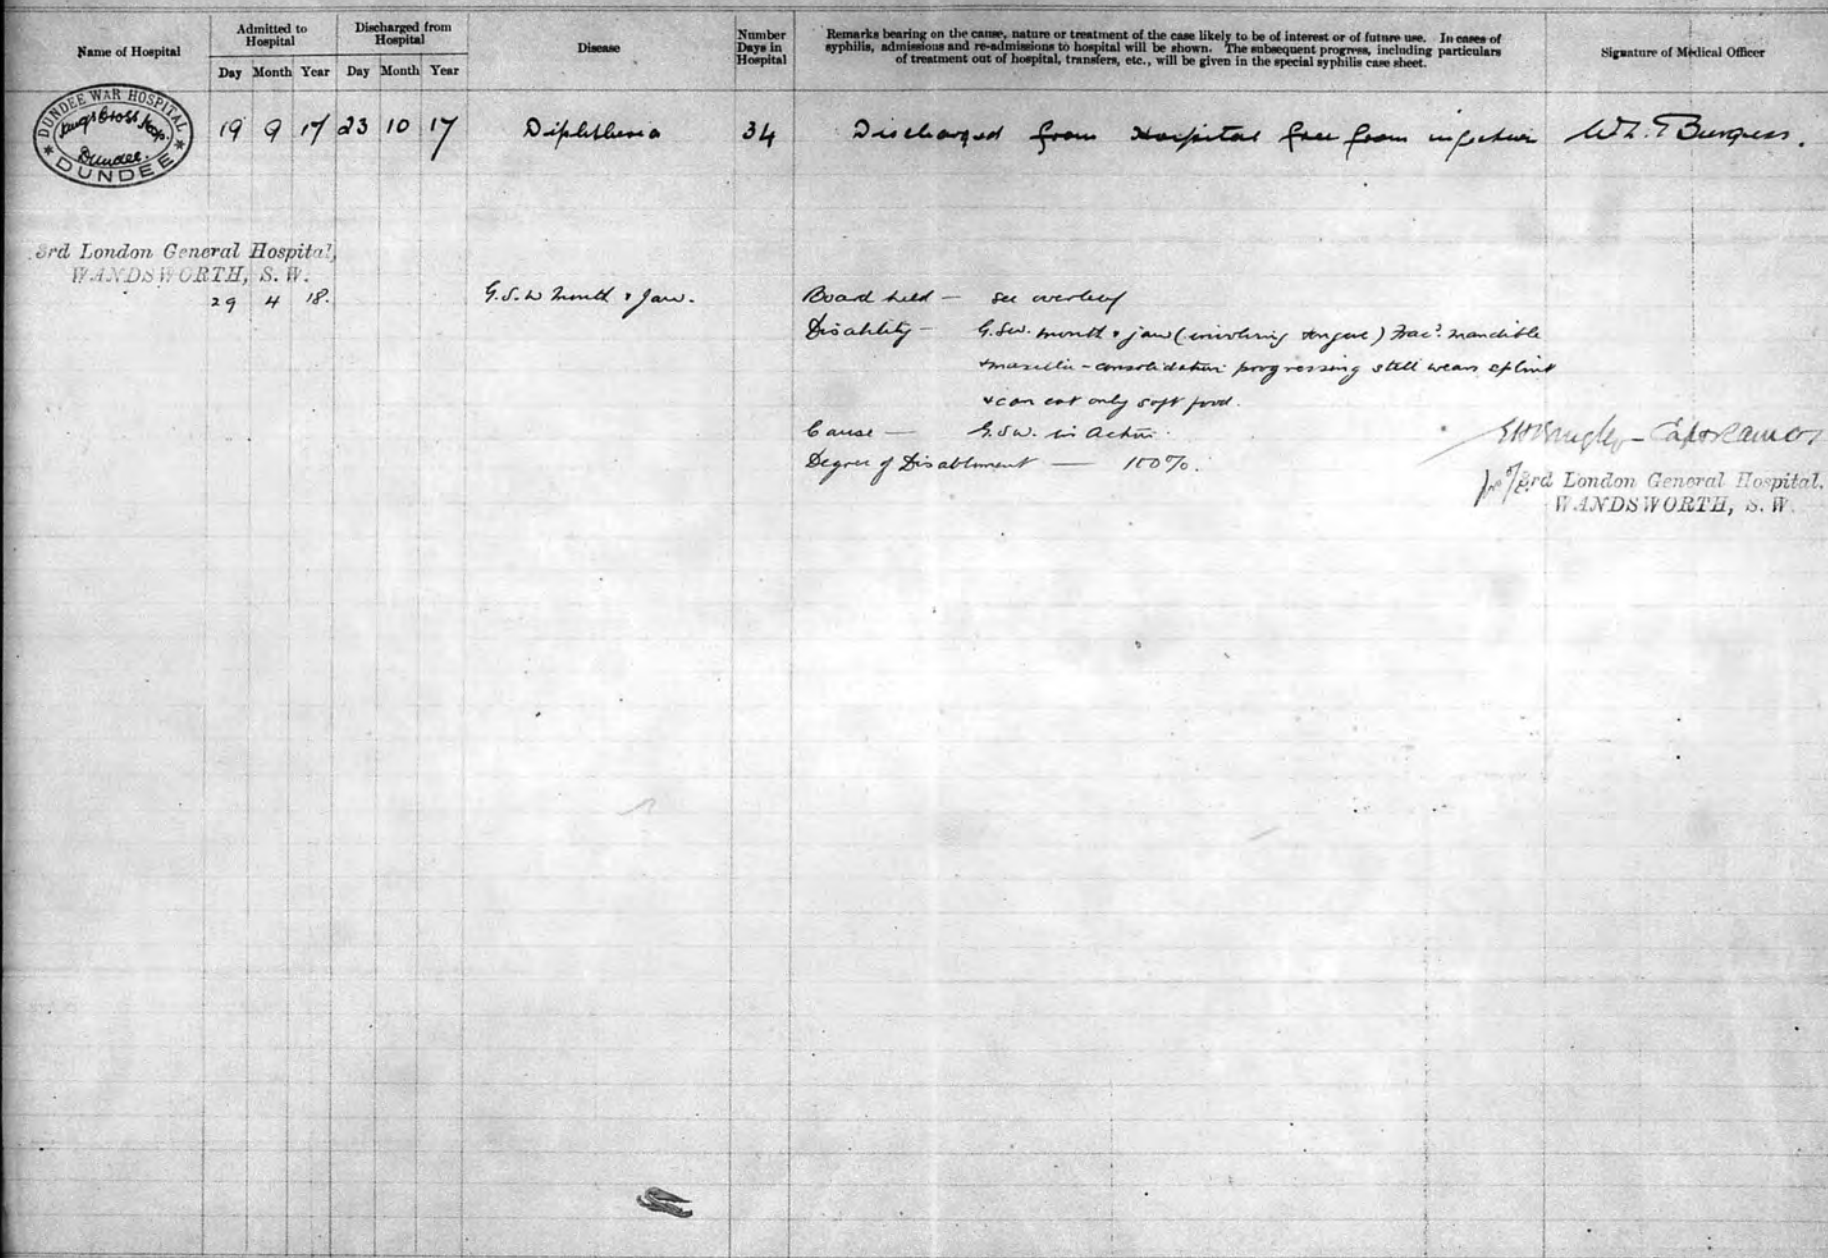 Name of Hospital
Admitted to Hospital
Discharged from Hospital
Disease
Number Days in Hospital
Remarks bearing on the cause, nature or treatment of the case likely to be of interest or of future use. In cases of
syphilis, admissions and re-admissions to hospital will be shown. The subsequent progress, including particulars
of treatment out of hospital, transfers, etc., will be given in the special syphilis case sheet.
Signature of Medical Officer
Day Month Year Day Month Year
DUNDEE WAR HOSPITAL
Kings Cross Hosp.
Dundee.
DUNDEE
19 9 17 23 10 17 Diphtheria 34 Discharged from Hospital free from infection W. L. Burgess.
3rd London General Hospital,
WANDSWORTH, S.W.
29 4 18. G.S.W mouth & Jaw. Board held — see overleaf
Disability — G.S.W. mouth & jaw (involving tongue) Frac. mandible
& maxilla - consolidation progressing still wears splint
& can eat only soft food.
Cause — G.S.W. in Action.
Degree of Disablement — 100%.
Capt RAMC
3rd London General Hospital,
WANDSWORTH, S.W.